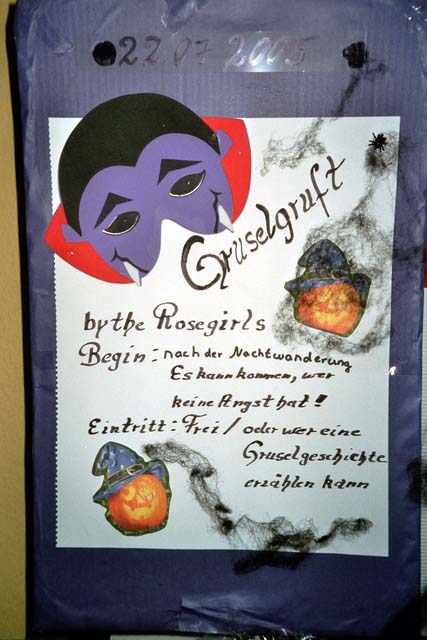 22 07 2005
Gruselgruft
by the Rosegirls
Begin: nach der Nachtwanderung
Es kann kommen, wer
keine Angst hat!
Eintritt: Frei / oder wer eine
Gruselgeschichte
erzählen kann